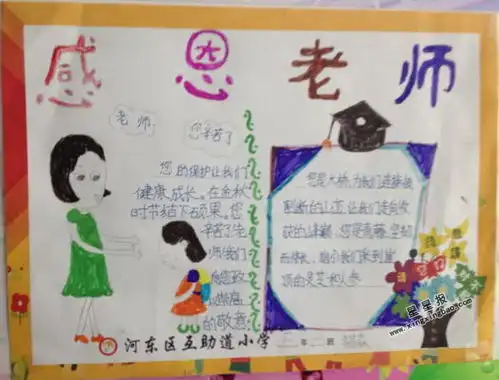 感恩老师
老师
您辛苦了
您的保护让我们
健康成长。在金秋
时节结下硕果。您
辛苦了老
师我们
向您致
以崇高
的敬意
您是大桥,为我们连接被
割断的山峦,让我们走向收
获的峰巅;您是青藤,坚韧
而修长,指引我们采到崖
顶的灵芝和人参
河东区互助道小学
年 班
星星报
www.xingxingbao8.com